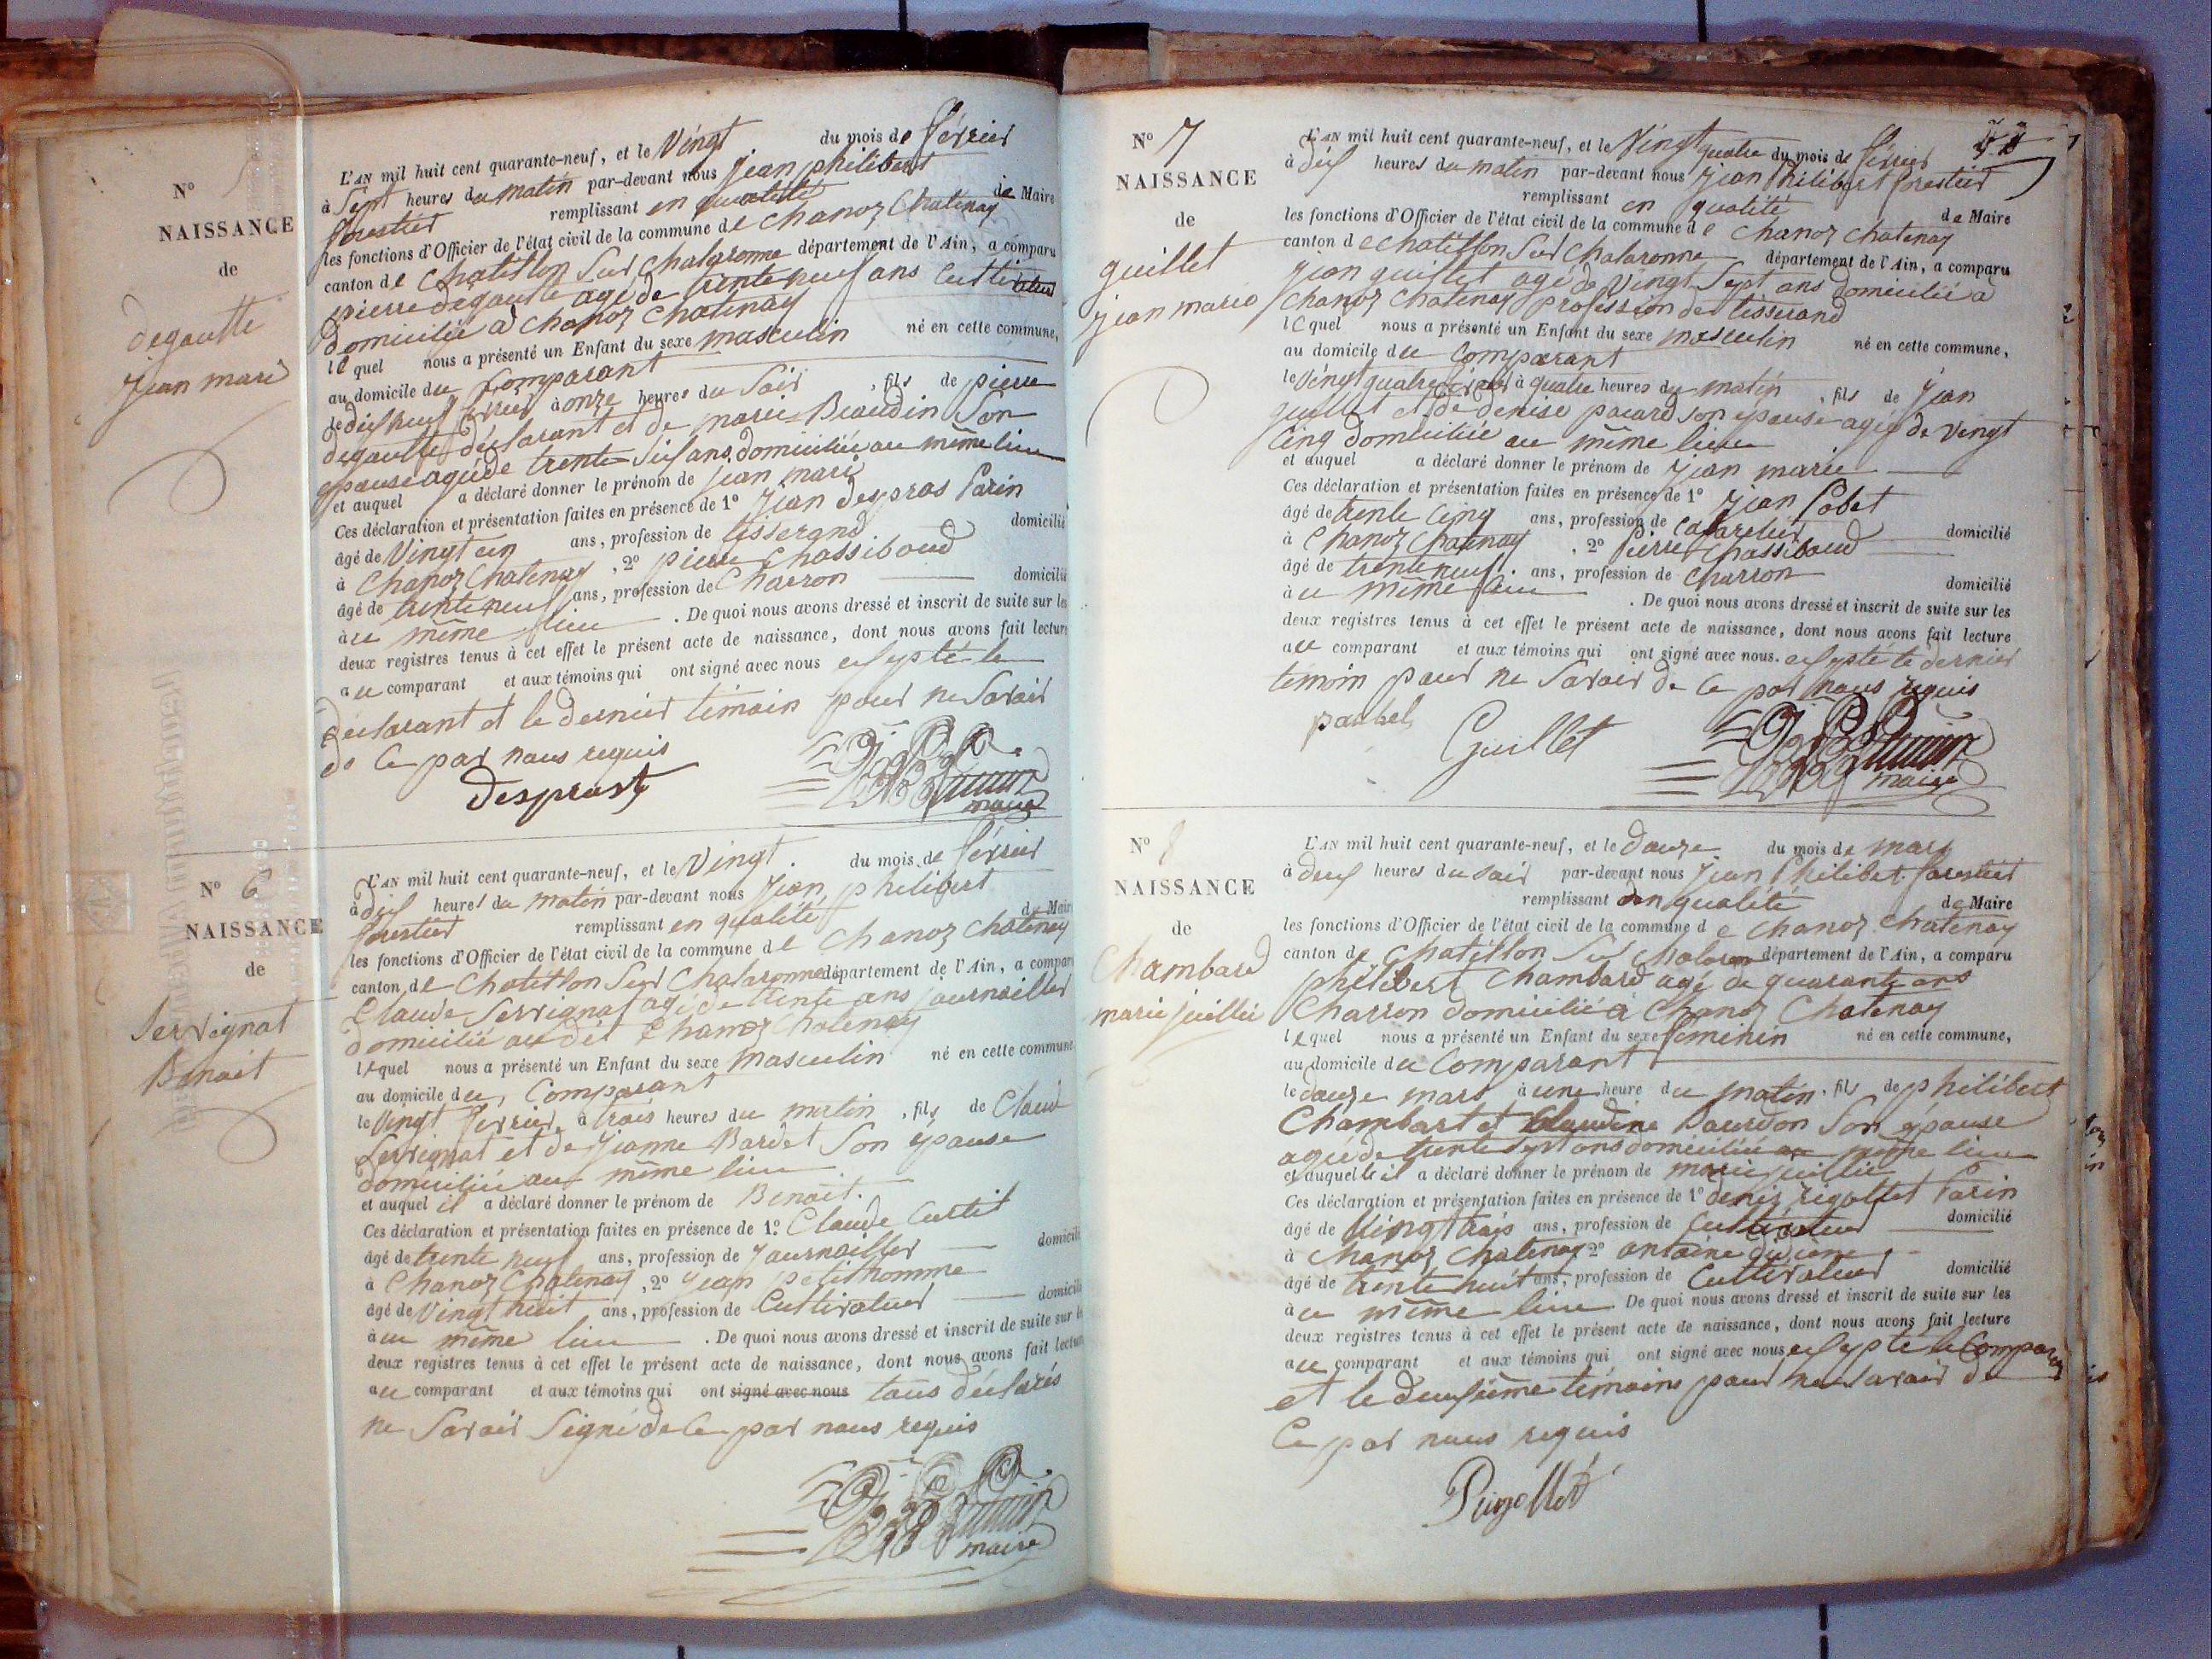 N° 5
NAISSANCE
de
degoutte
jean marie
L'AN mil huit cent quarante-neuf, et le Vingt du mois de février
à Sept heures du matin par-devant nous jean philibert
forestier remplissant en qualité de Maire
les fonctions d'Officier de l'état civil de la commune de chanoz Chatenay
canton de Chatillon Sur Chalaronne département de l'Ain, a comparu
pierre degoutte agé de trente neuf ans Cultivateur
domicilié à chanoz chatenay
lequel nous a présenté un Enfant du sexe masculin né en cette commune,
au domicile du Comparant
le dix neuf février à onze heures du Soir, fils de pierre
degoutte déclarant et de marie Beaudin Son
épouse agée de trente Six ans domiciliée au même lieu
et auquel a déclaré donner le prénom de jean marie
Ces déclaration et présentation faites en présence de 1° Jean despras Parin
âgé de Vingt un ans, profession de tisserand domicilié
à Chanoz Chatenay, 2° pierre Chassiboud
âgé de trente neuf ans, profession de Charron domicilié
au même lieu. De quoi nous avons dressé et inscrit de suite sur les
deux registres tenus à cet effet le présent acte de naissance, dont nous avons fait lecture
au comparant et aux témoins qui ont signé avec nous exsepté le
déclarant et le dernier témoin pour ne Savoir
de Ce par nous requis
Despras
maire
N° 6
NAISSANCE
de
Servignat
Benoit
L'AN mil huit cent quarante-neuf, et le Vingt. du mois de février
à dix heures du matin par-devant nous Jean philibert
forestier remplissant en qualité de Maire
les fonctions d'Officier de l'état civil de la commune de Chanoz Chatenay
canton de Chatillon Sur Chalaronne département de l'Ain, a comparu
Claude Servignat agé de trente ans journaillier
domicilié au dit Chanoz Chatenay
lequel nous a présenté un Enfant du sexe masculin né en cette commune
au domicile du Comparant
le Vingt février à trois heures du matin, fils de Claude
Servignat et de Jeanne Bardet Son épouse
domiciliée au même lieu
et auquel il a déclaré donner le prénom de Benoit.
Ces déclaration et présentation faites en présence de 1° Claude Curtet
âgé de trente neuf ans, profession de Journaillier domicilié
à Chanoz Chatenay, 2° jean petithomme
âgé de Vingt huit ans, profession de Cultivateur domicilié
au même lieu. De quoi nous avons dressé et inscrit de suite sur les
deux registres tenus à cet effet le présent acte de naissance, dont nous avons fait lecture
au comparant et aux témoins qui ont signé avec nous tous déclarés
ne Savoir Signé de Ce par nous requis
maire
N° 7
NAISSANCE
de
guillet
jean marie
L'AN mil huit cent quarante-neuf, et le Vingt quatre du mois de février
à dix heures du matin par-devant nous Jean Philibert forestier
remplissant en qualité de Maire
les fonctions d'Officier de l'état civil de la commune de Chanoz chatenay
canton de chatillon Sur Chalaronne département de l'Ain, a comparu
jean guillet agé de Vingt Sept ans domicilié à
Chanoz Chatenay profession de tisserand
lequel nous a présenté un Enfant du sexe masculin né en cette commune,
au domicile du Comparant
le Vingt quatre février à quatre heures du matin, fils de Jean
guillet et de denise pacard son épouse agée de Vingt
Cinq domiciliée au même lieu
et auquel a déclaré donner le prénom de Jean marie
Ces déclaration et présentation faites en présence de 1° Jean Pobet
âgé de trente Cinq ans, profession de Cabaretier domicilié
à Chanoz Chatenay, 2° Pierre Chassiboud
âgé de trente neuf. ans, profession de Charron domicilié
au même lieu. De quoi nous avons dressé et inscrit de suite sur les
deux registres tenus à cet effet le présent acte de naissance, dont nous avons fait lecture
au comparant et aux témoins qui ont signé avec nous. exsepté le dernier
témoin pour ne Savoir de Ce par nous requis
Guillet
maire
N° 8
NAISSANCE
de
Chambard
marie juillie
L'AN mil huit cent quarante-neuf, et le douze du mois de mars
à deux heures du soir par-devant nous Jean Philibert forestier
remplissant en qualité de Maire
les fonctions d'Officier de l'état civil de la commune de Chanoz Chatenay
canton de Chatillon Sur Chalaron département de l'Ain, a comparu
philibert Chambard agé de quarante ans
Charron domicilié à Chanoz Chatenay
lequel nous a présenté un Enfant du sexe feminin né en cette commune,
au domicile du Comparant
le douze mars à une heure du matin. fils de philibert
Chambart et Claudine Bourdon Son épouse
agée de trente sept ans domiciliée au même lieu
et auquelle il a déclaré donner le prénom de marie juillie
Ces déclaration et présentation faites en présence de 1° denis rigollet Parin
âgé de Vingt trois ans, profession de Cultivateur domicilié
à Chanoz Chatenay 2° antoine
âgé de trente huit ans, profession de Cultivateur domicilié
au même lieu De quoi nous avons dressé et inscrit de suite sur les
deux registres tenus à cet effet le présent acte de naissance, dont nous avons fait lecture
au comparant et aux témoins qui ont signé avec nous exsepté le Comparant
et le deuxième témoins pour ne Savoir de
Ce par nous requis